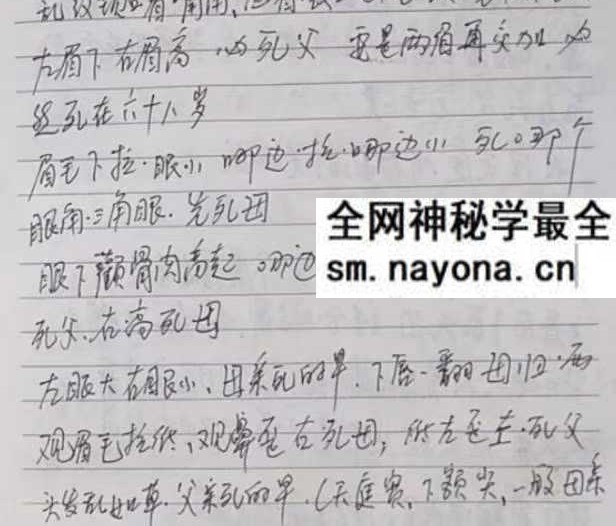 乱纹现
左眉下右眉高 必死父 要是两眉再交加 必
然死在六十八岁
眉毛下拉·眼小 哪边拉·哪边小 死哪个
眼角·三角眼·先死母
眼下颧骨肉高起 哪边
死父·右高死母
全网神秘学最全
sm.nayona.cn
左眼大右眼小、母亲死的早·下唇一翻母归西
观眉毛 、观鼻歪右死母, 左歪 ·死父
头发乱如草·父亲死的早·(天庭 、下额尖,一般母亲